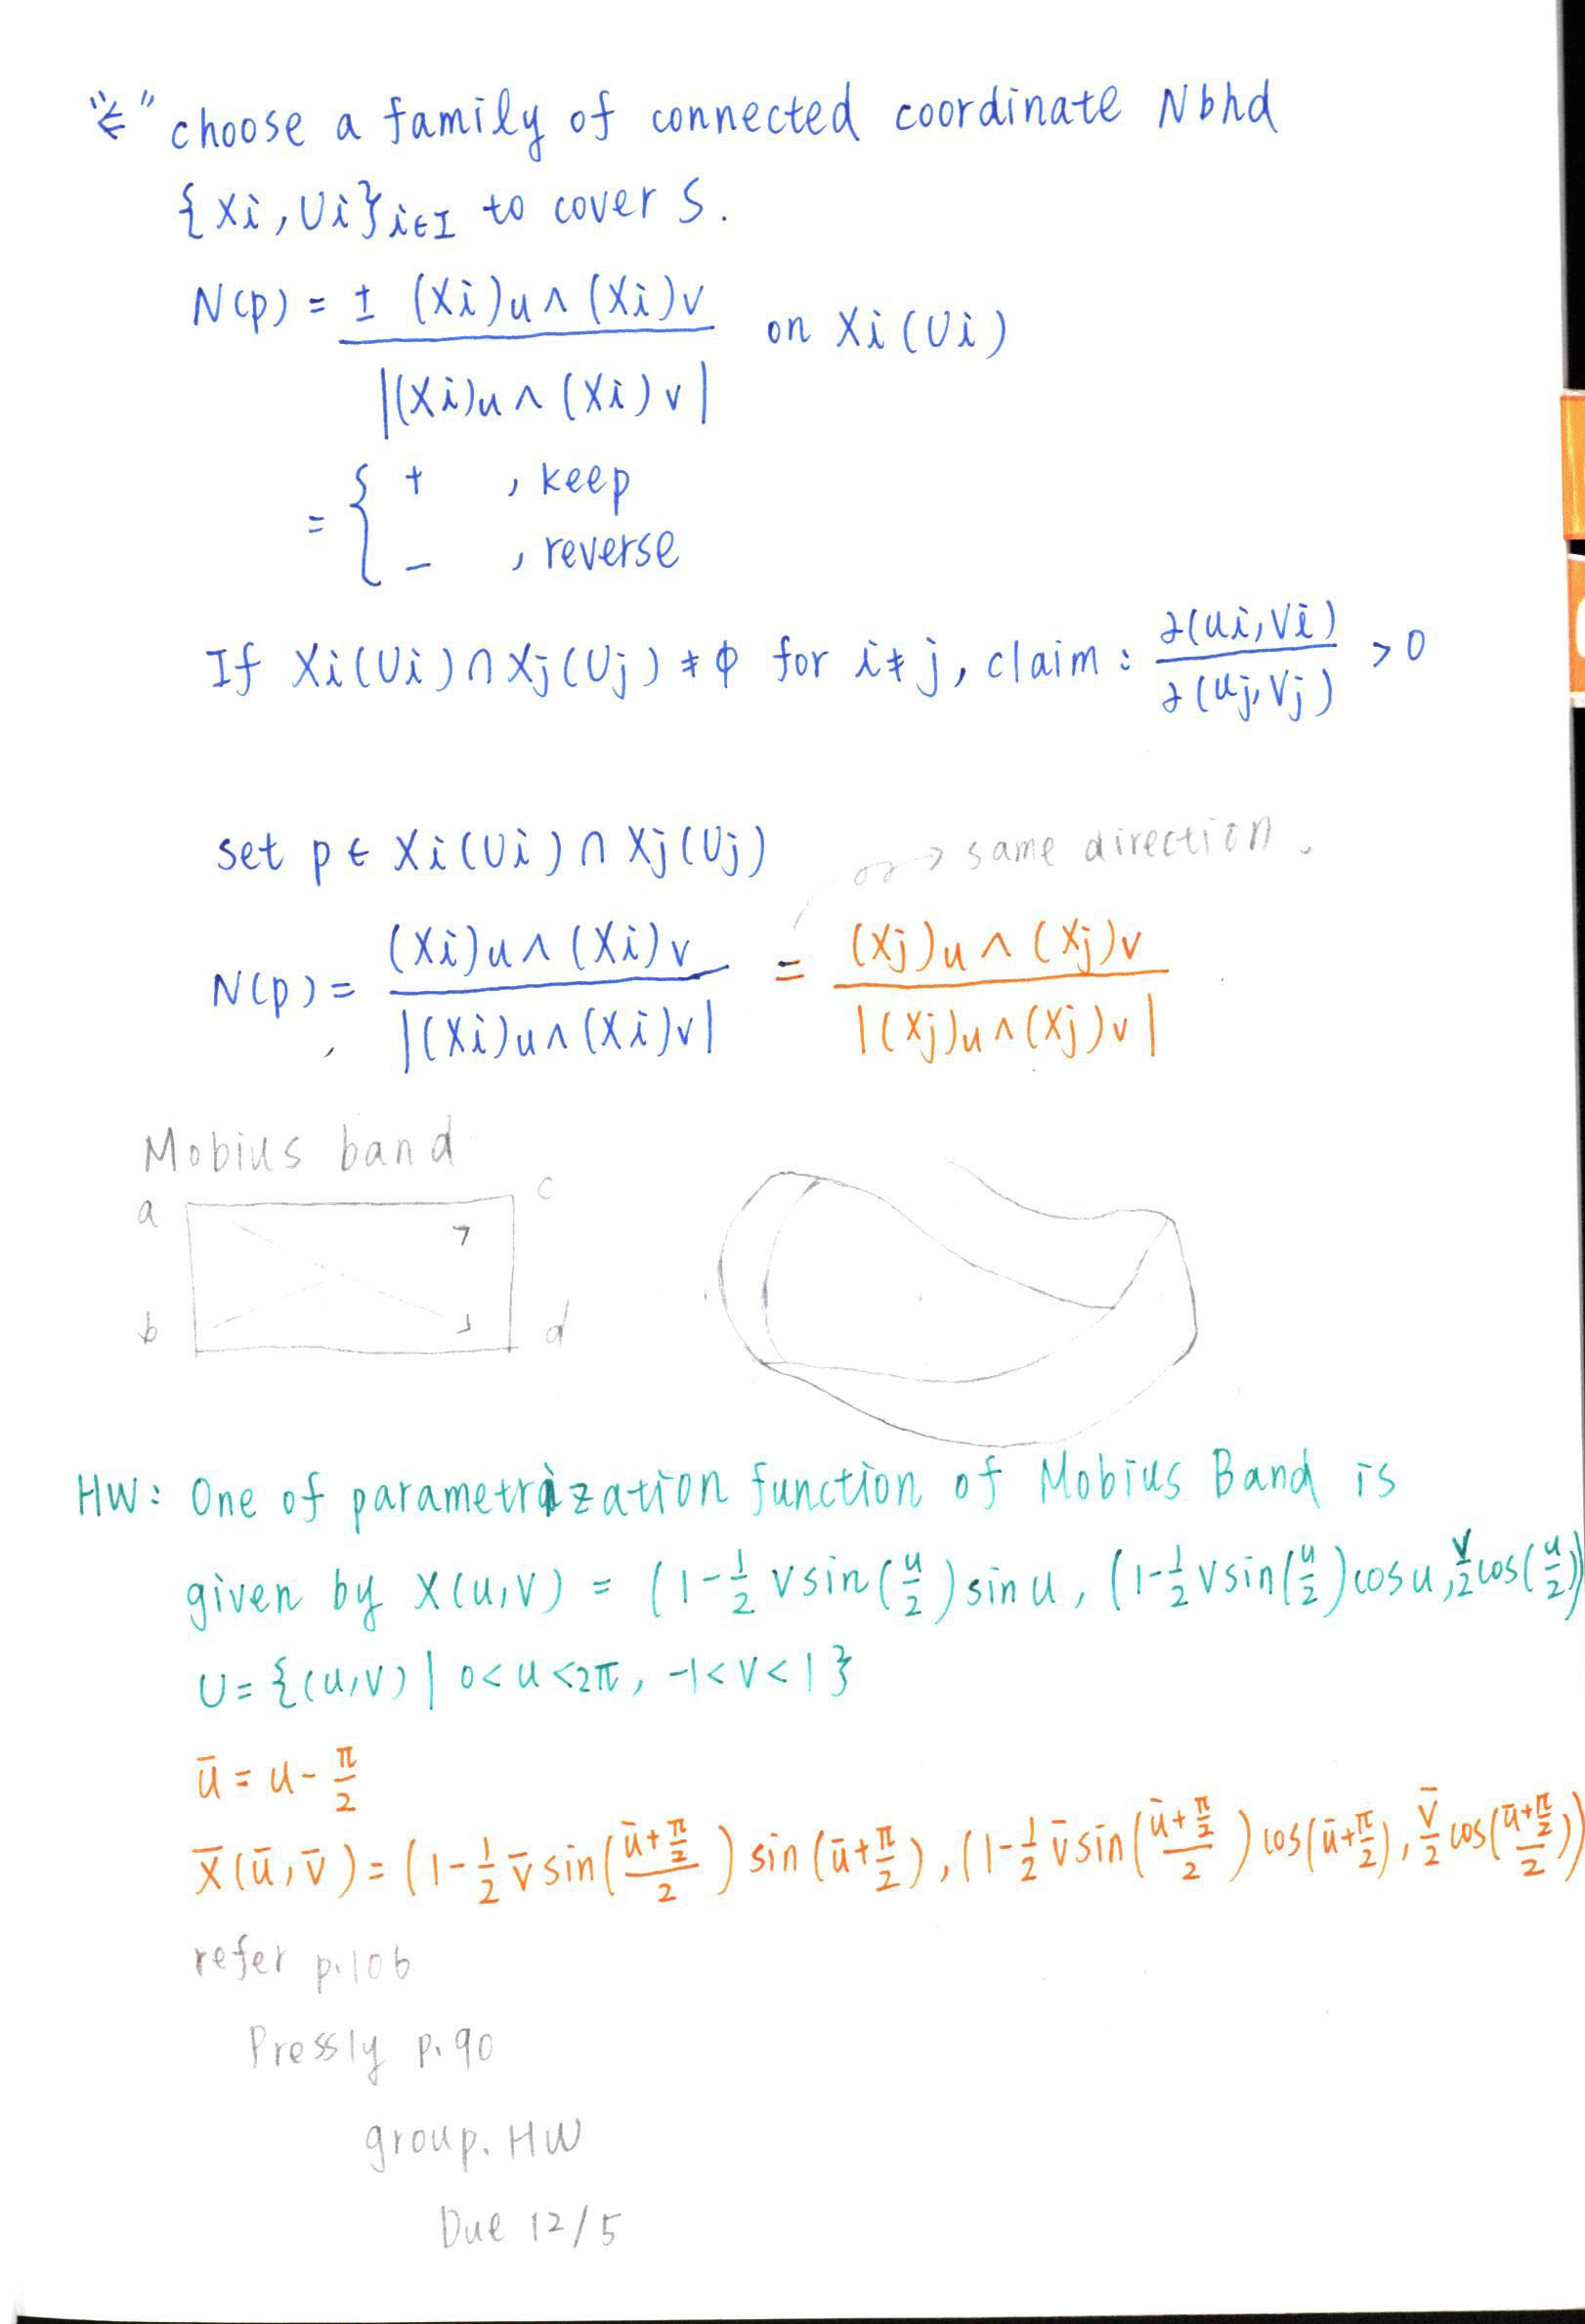 "⇐" choose a family of connected coordinate Nbhd
{Xi, Ui}i∈I to cover S.
N(p) = ± (Xi)u ∧ (Xi)v / |(Xi)u ∧ (Xi)v| on Xi(Ui)
= { + , keep
− , reverse
If Xi(Ui) ∩ Xj(Uj) ≠ ϕ for i≠j, claim : ∂(ui, vi) / ∂(uj, vj) > 0
set p ∈ Xi(Ui) ∩ Xj(Uj)
→ same direction.
N(p) = (Xi)u ∧ (Xi)v / |(Xi)u ∧ (Xi)v| = (Xj)u ∧ (Xj)v / |(Xj)u ∧ (Xj)v|
Mobius band
a c
b d
HW: One of parametrization function of Mobius Band is
given by X(u,v) = (1-½ v sin(u/2) sin u, (1-½ v sin(u/2) cos u, v/2 cos(u/2))
U = {(u,v) | 0<u<2π, -1<v<1}
ū = u - π/2
X̄(ū, v̄) = (1-½ v̄ sin((ū+π/2)/2) sin(ū+π/2), (1-½ v̄ sin((ū+π/2)/2) cos(ū+π/2), v̄/2 cos((ū+π/2)/2))
refer p.106
Pressly p.90
group. HW
Due 12/5